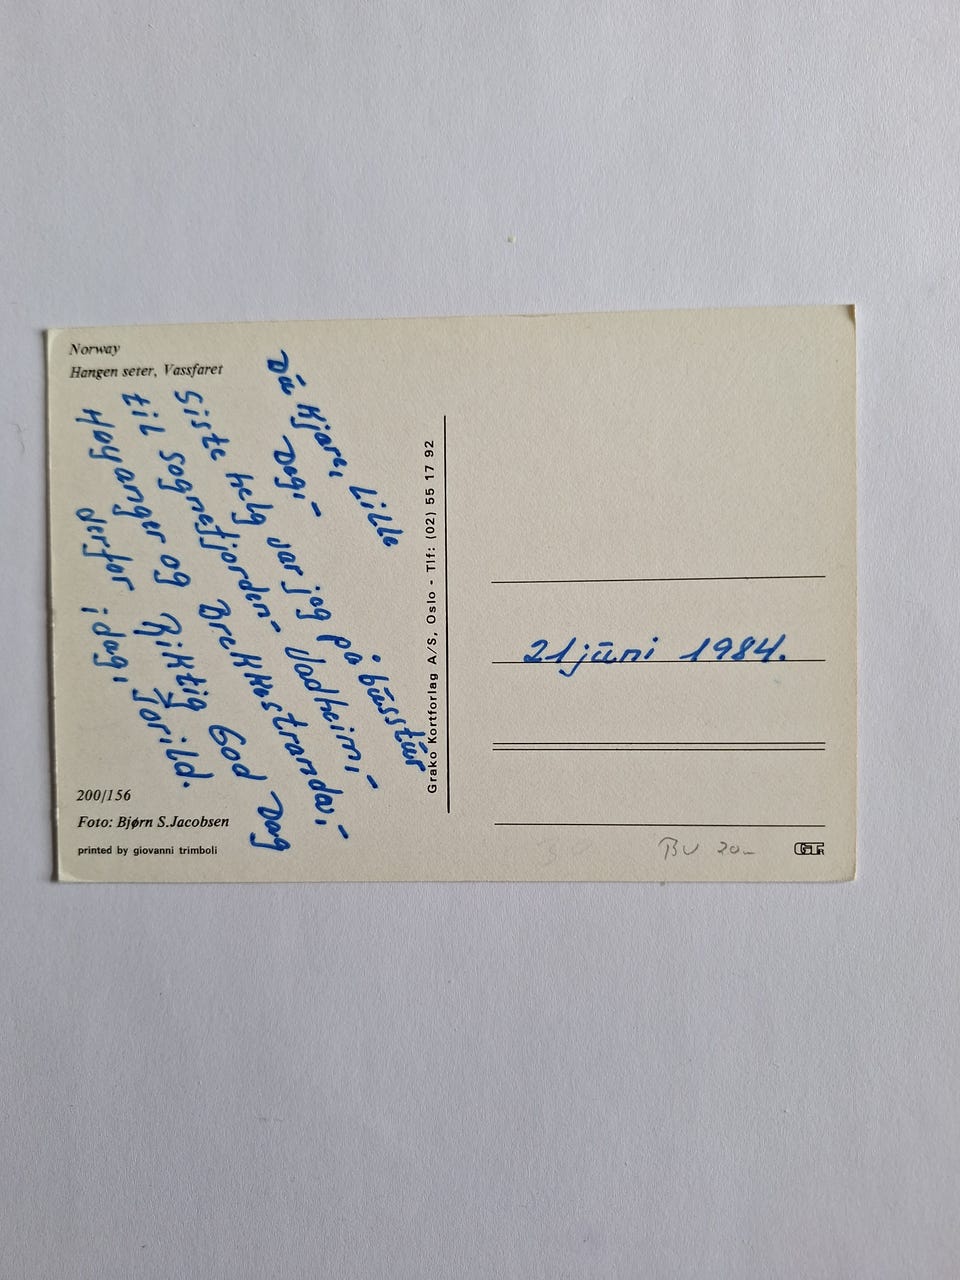 Norway
Hangen seter, Vassfaret
Dū Kjære, Lille
Dag,-
Siste helg var jeg på būsstūr
til Sognefjorden- Vadheim,-
Høyanger og Brekkestranda,-
derfor Riktig God Dag
i dag,
Torild.
200/156
Foto: Bjørn S.Jacobsen
printed by giovanni trimboli
Grako Kortforlag A/S, Oslo - Tlf: (02) 55 17 92
21 jūni 1984.
BU 20-